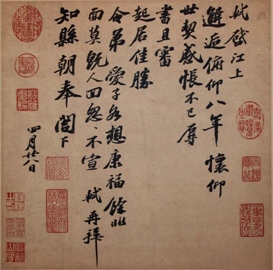 軾啓江上
邂逅俯仰八年懷仰
世契感悵不已辱
書且審
起居佳勝
令弟愛子各想康福餘非
面莫既人回忽忽不宣軾再拜
知縣朝奉閤下
四月廿八日